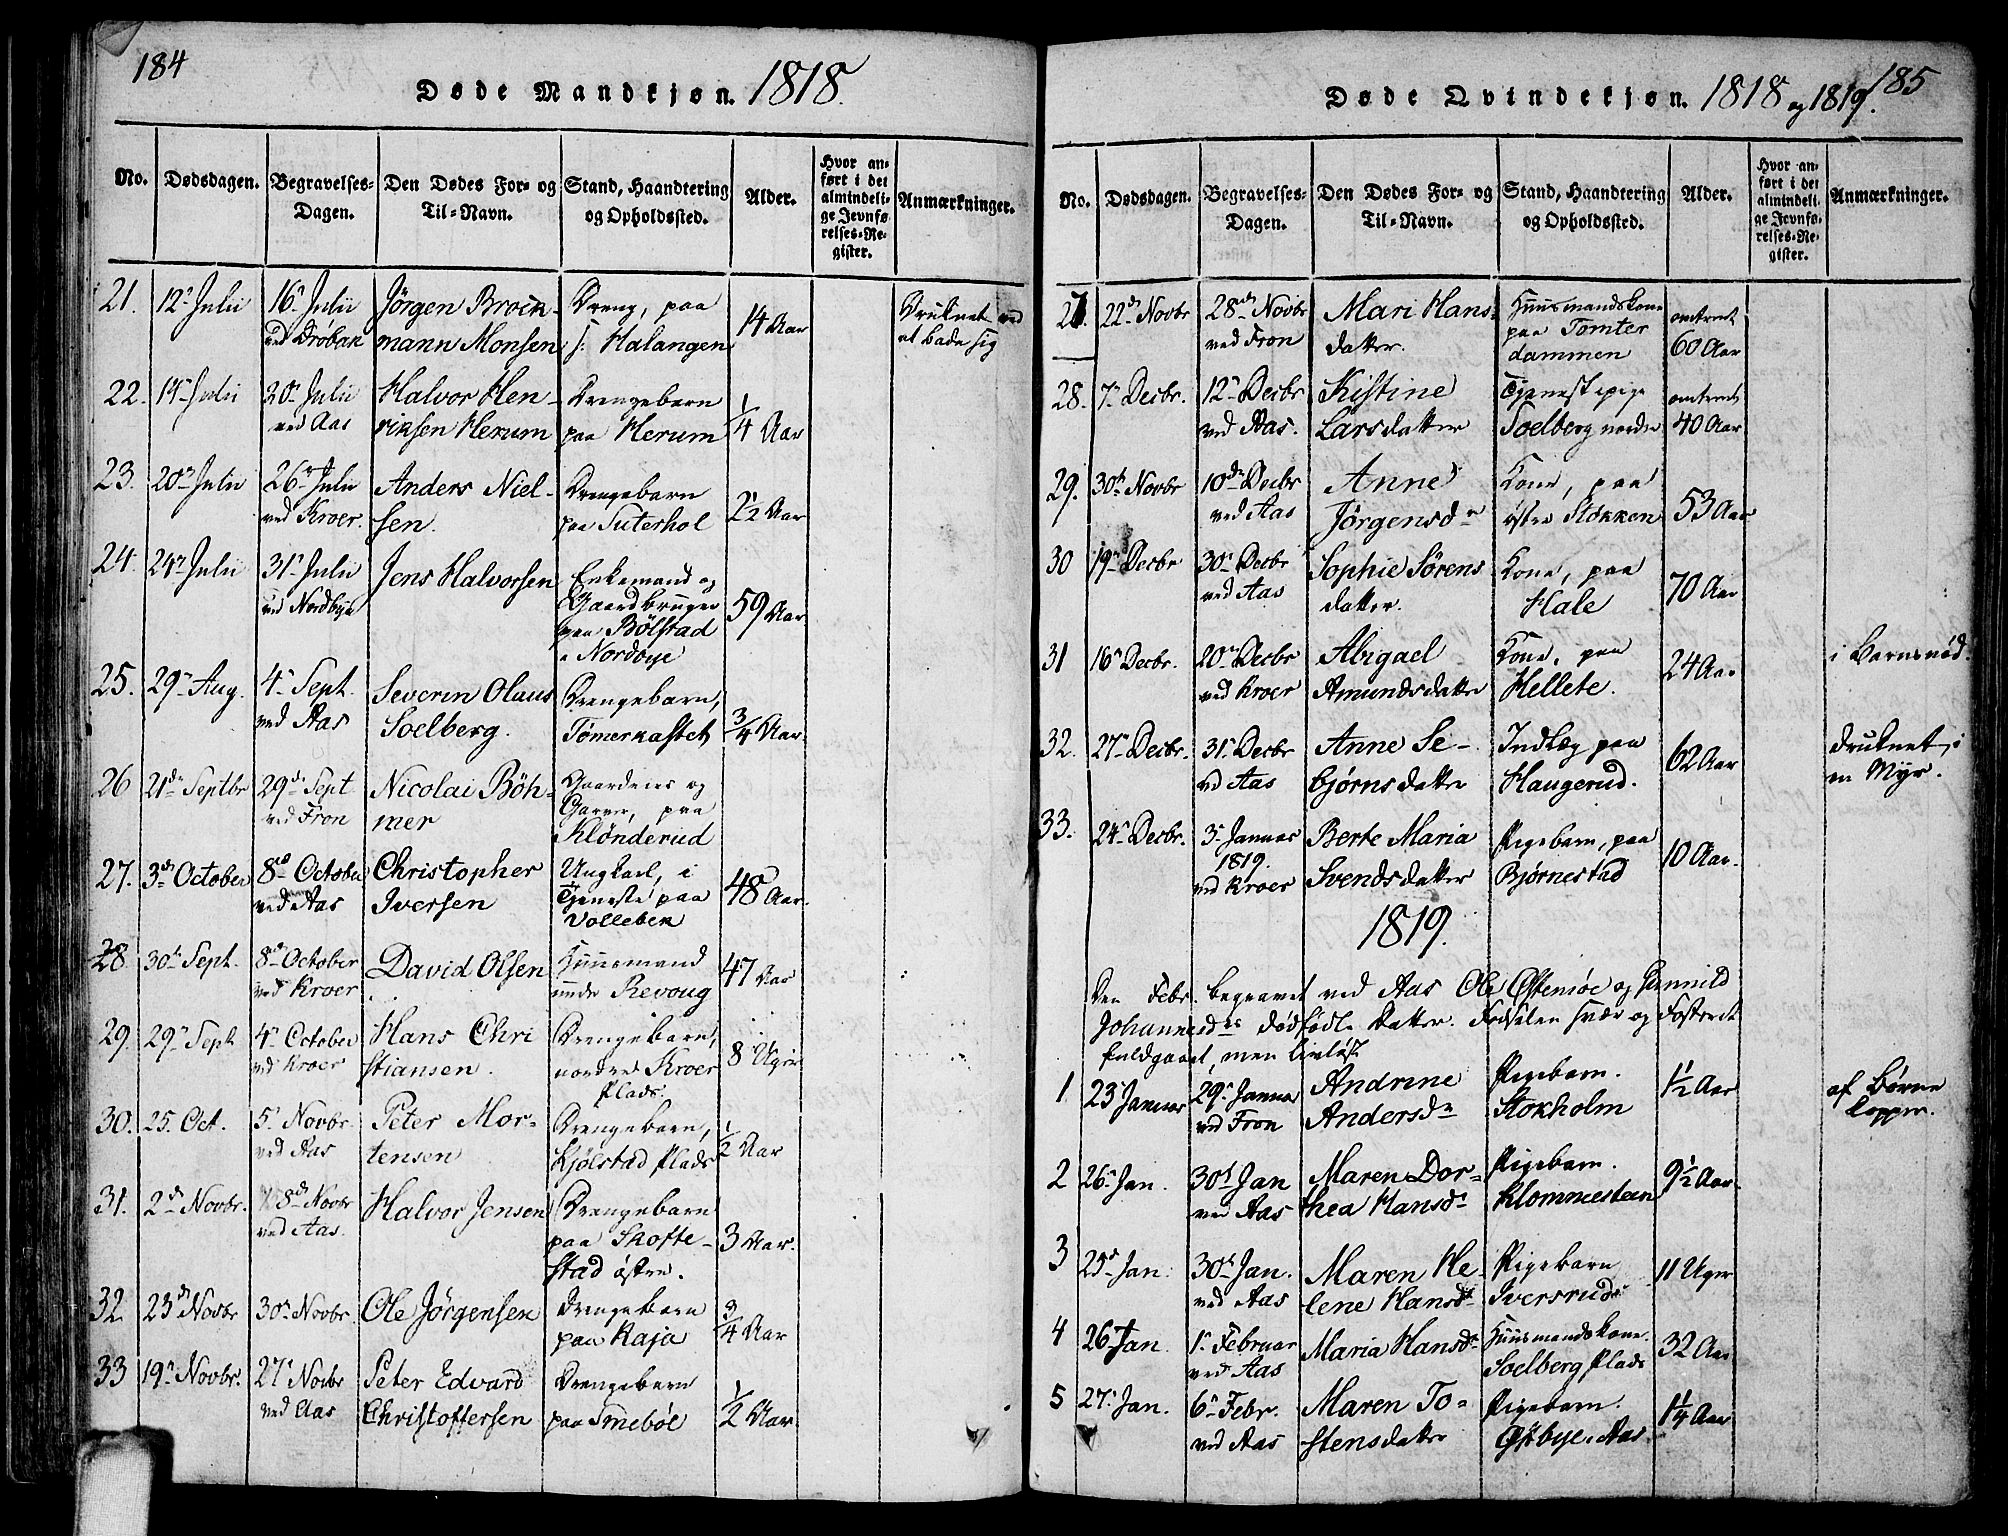 184
Døde Mandkjøn. 1818.
No.
Dødsdagen.
Begravelses-
Dagen.
Den Dødes For- og
Til-Navn.
Stand, Haandtering
og Opholdssted.
Alder.
Hvor an-
ført i det
almindeli-
ge Jevnfø-
relses-Re-
gister.
Anmærkninger.
21. 12te Julii 16de Julii Jörgen Brock- Dreng, paa 14 Aar Druknet ved
ved Dröbak mann Monsen Halangen at bade sig
22. Julii 20de Julii Halvor Hen- Drengebarn 1/4 Aar
ved Aas riksen Herum paa Herum
23. 20de Julii 26de Julii Anders Niel- Drengebarn 2 1/2 Aar
ved Kroer. sen. paa Suterhol
24. 24de Julii 31te Julii Jens Halvorsen Enkemand og 59 Aar
ved Nordbye Gaardbruger
paa Bölstad
i Nordbye
25. 29de Aug. 4de Sept. Severin Olaus Drengebarn, 3/4 Aar
ved Aas Soelberg. Tömerkastet
26 21de Septbr 29de Sept Nicolai Böh- Gaardeier og
ved Fron mer Garver, paa
Klönderud
27. 3de October 8de October Christopher Ungkarl, i 48 Aar.
ved Aas Iversen Tjeneste paa
Vollebek
28. 30te Sept. 8de October David Olsen Huusmand 47 Aar
ved Kroer under Revoug
29. 29de Sept 4de October Hans Chri Drengebarn, 8 Uger
ved Kroer stiansen. nordre Kroer
Plads.
30. 25. Oct. 5te Novbr. Peter Mor- Drengebarn, 1/2 Aar
ved Aas tensen Kjölstad Plads
31. 2de Novbr. 8de Novbr Halvor Jensen Drengebarn 3 Aar.
ved Aas. paa Skofte-
stad östre.
32 23de Novbr 30te Novbr Ole Jörgensen Drengebarn 3/4 Aar
paa Kaja
33 19de Novbr. 27de Novbr Peter Edvard Drengebarn 1/2 Aar
ved Aas Christoffersen paa Smeböl
185
Døde Qvindekjøn. 1818 og 1819.
No.
Dødsdagen.
Begravelses-
Dagen.
Den Dødes For- og
Til-Navn.
Stand, Haandtering
og Opholdssted.
Alder.
Hvor an-
ført i det
almindeli-
ge Jevnfø-
relses-Re-
gister.
Anmærkninger.
27. 22de Novbr 28de Novbr Mari Hans- Huusmandskone omtrent
ved Fron datter. paa Tomter 60 Aar
dammen
28. 7de Decbr. 12te Decbr Kistine Tjenestepige omtrent
ved Aas. Larsdatter Soelberg nordre 40 Aar
29. 30te Novbr 10de Decbr Anne Kone, paa 53 Aar
ved Aas Jörgensdr östre Stokken
30 19de Decbr 30te Decbr Sophie Sörens Kone, paa 70 Aar
ved Aas datter. Hale
31 16de Decbr. 20de Decbr Abigael Kone, paa 24 Aar i Barnsnöd.
ved Kroer Amundsdatter Hellete.
32. 27de Decbr. 31te Decbr Anne Se- Indlæg paa 62 Aar druknet i
ved Aas björnsdatter Haugerud. en Myr.
33. 24de Decbr. 3de Januar Berte Maria Pigebarn, paa 10 Aar.
1819. Svendsdatter Björnestad
ved Kroer
1819.
Den Febr. begravet ved Aas Ole Östenöe og Gunnild
Johannesdrs dödfödte datter. Födselen svær og Fosteret
fuldgaaet, men livlöst
1 23 Januar 29de Januar Andrine Pigebarn. 1 1/2 Aar af Börne
ved Fron Andersdr Stokholm kopper.
2 26de Jan. 30te Jan Maren Dor- Pigebarn. 9 1/2 Aar
ved Aas thea Hansdr Klommesteen
3 25de Jan. 30te Jan. Maren He- Pigebarn 11 Uger
ved Aas lene Hansdr Iversrud
4 26 Jan. 1te Februar Maria Hansdr Huusmandskone. 32 Aar
ved Aas Soelberg Plads
5 27de Jan. 6te Febr. Maren To- Pigebarn. 1 1/4 Aar
ved Aas stensdatter Östbye i Aas